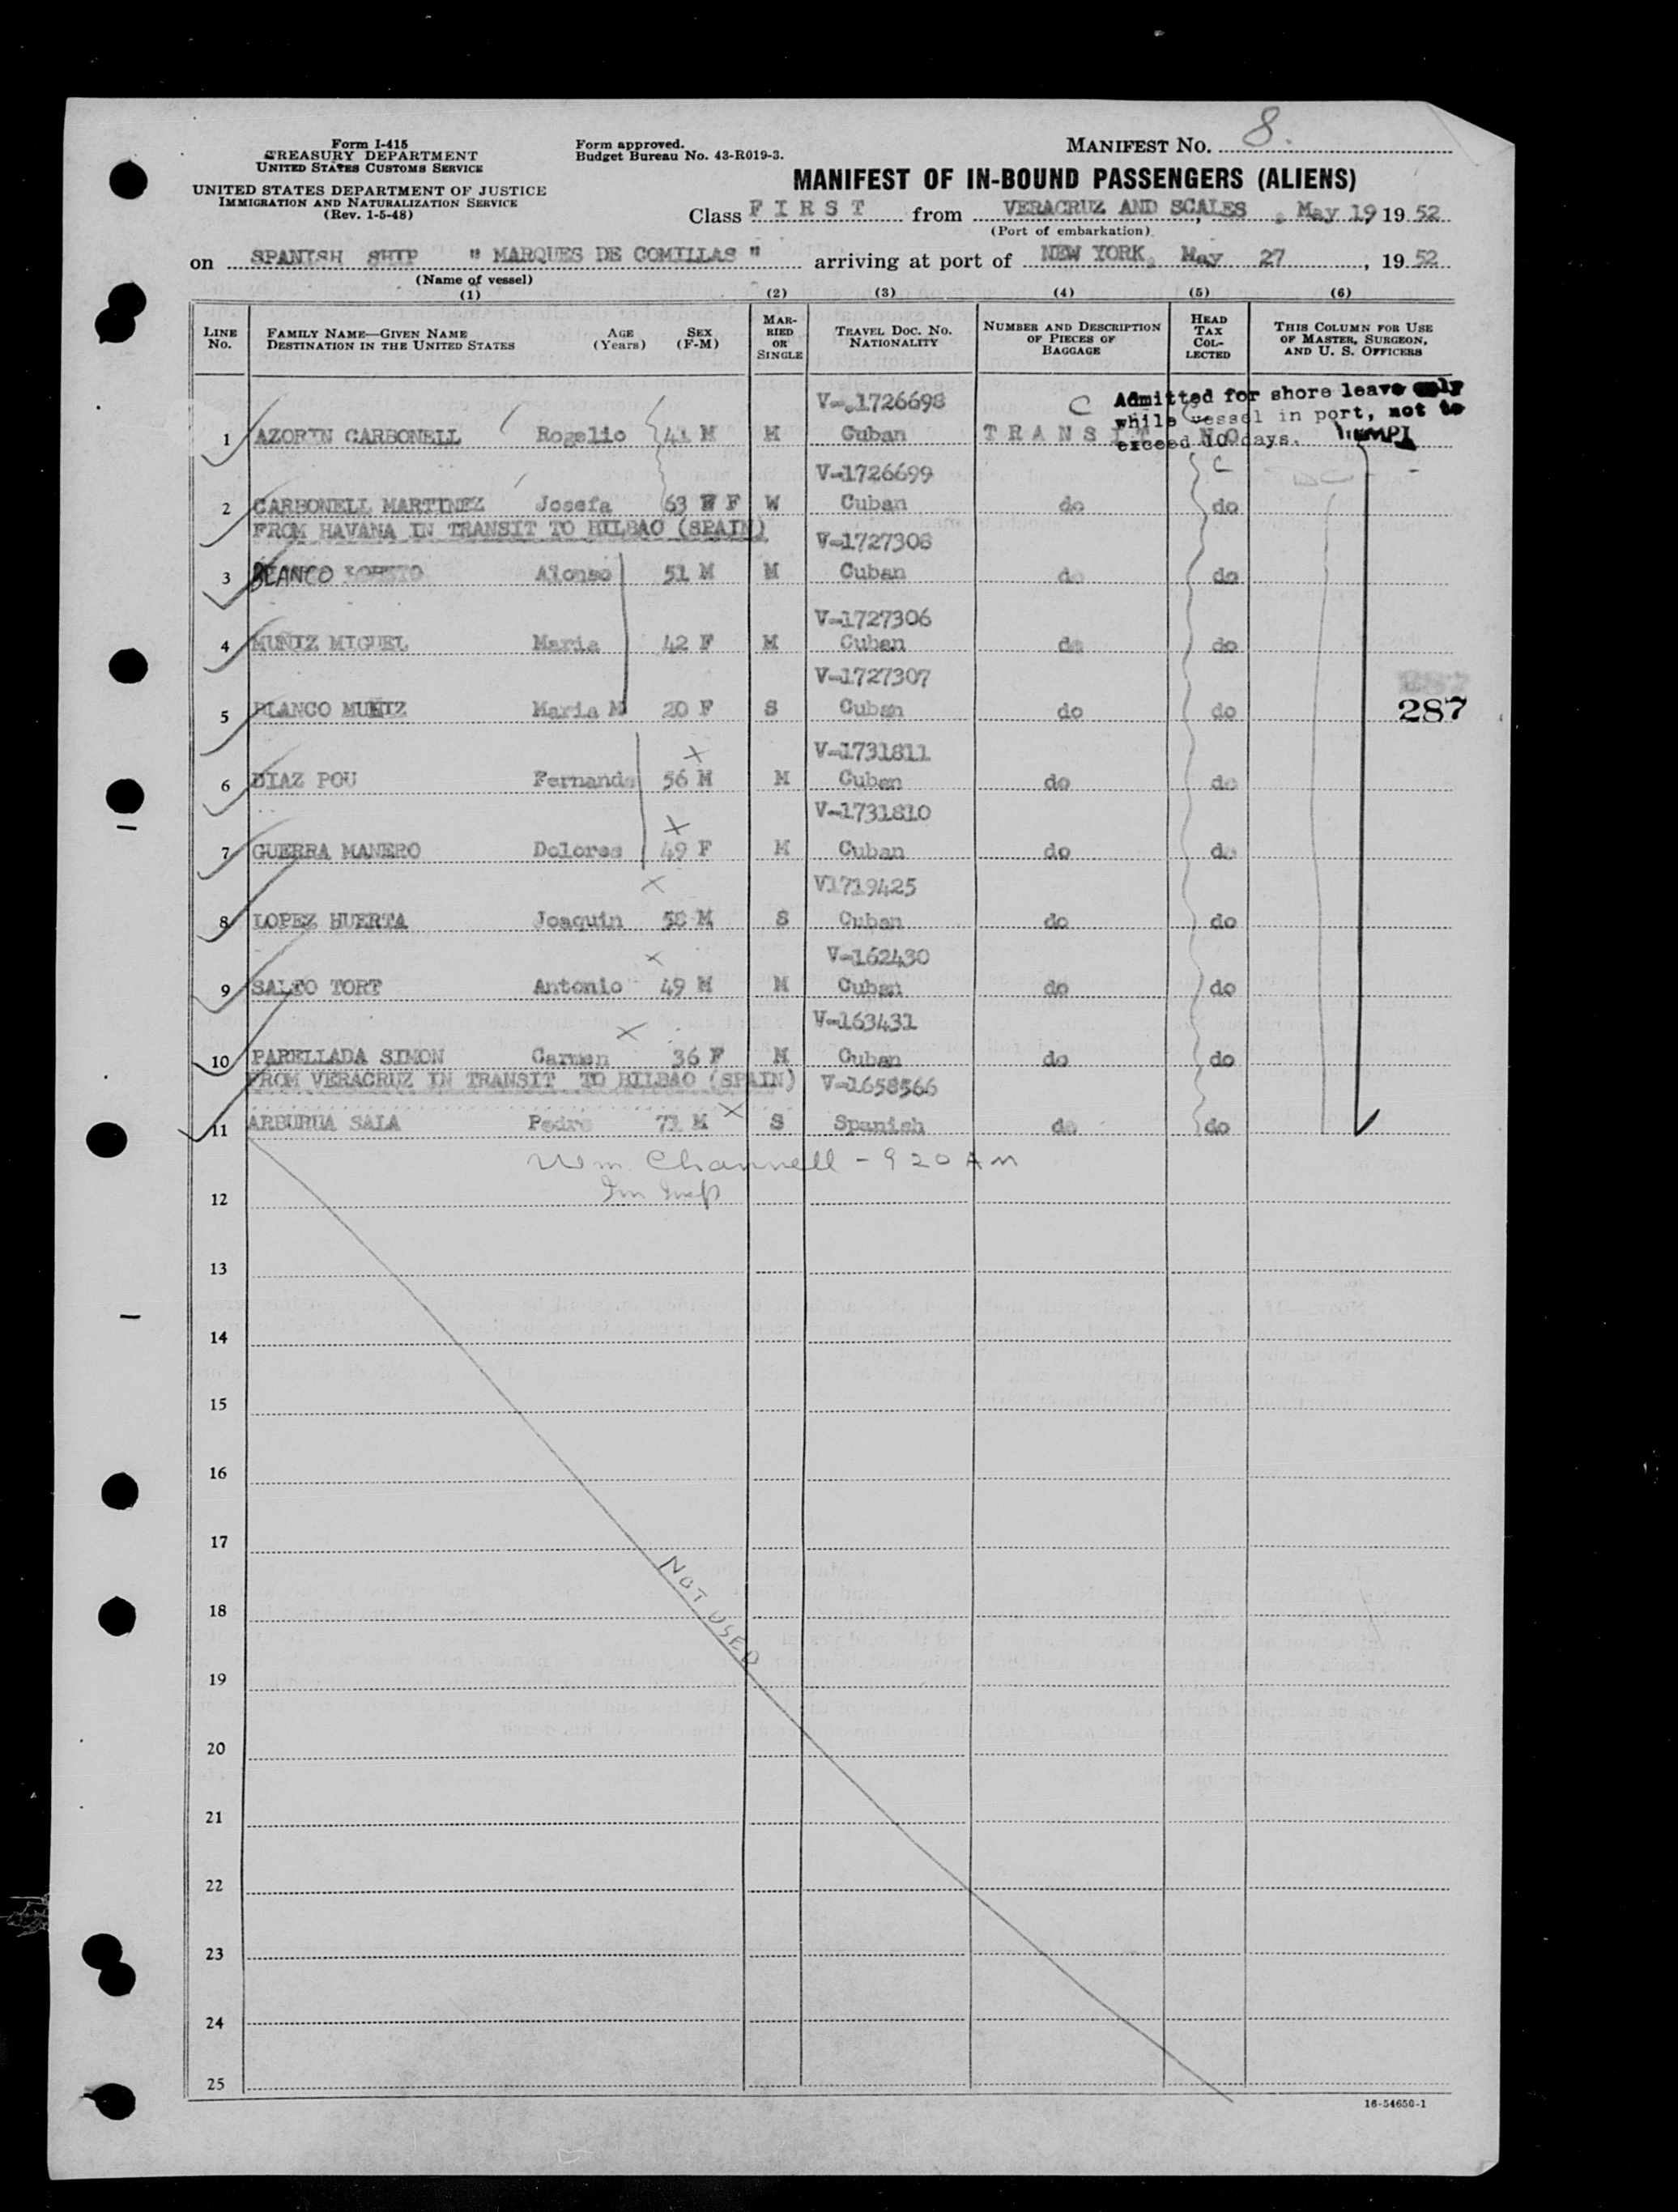 Form I-415
TREASURY DEPARTMENT
UNITED STATES CUSTOMS SERVICE
UNITED STATES DEPARTMENT OF JUSTICE
IMMIGRATION AND NATURALIZATION SERVICE
(Rev. 1-5-48)
Form approved.
Budget Bureau No. 43-R019-3.
MANIFEST NO. 8.
MANIFEST OF IN-BOUND PASSENGERS (ALIENS)
Class FIRST from VERACRUZ AND SCALES, May 19 1952
(Port of embarkation)
on SPANISH SHIP "MARQUES DE COMILLAS" arriving at port of NEW YORK, May 27, 1952
(Name of vessel)
(1) (2) (3) (4) (5) (6)
LINE No. FAMILY NAME—GIVEN NAME DESTINATION IN THE UNITED STATES AGE (Years) SEX (F-M) MARRIED OR SINGLE TRAVEL DOC. NO. NATIONALITY NUMBER AND DESCRIPTION OF PIECES OF BAGGAGE HEAD TAX COLLECTED THIS COLUMN FOR USE OF MASTER, SURGEON, AND U. S. OFFICERS
Admitted for shore leave only
while vessel in port, not to
exceed 10 days.
V-1726698
1 AZORIN CARBONELL Rogelio 41 M M Cuban TRANSIT NO
V-1726699
2 CARBONELL MARTINEZ Josefa 63 F W Cuban do do
FROM HAVANA IN TRANSIT TO BILBAO (SPAIN)
V-1727308
3 BLANCO Alonso 51 M M Cuban do do
V-1727306
4 MUÑIZ MIGUEL Maria 42 F M Cuban do do
V-1727307
5 BLANCO MUÑIZ Maria M 20 F S Cuban do do
287
V-1731811
6 DIAZ POU Fernando 56 M M Cuban do do
V-1731810
7 GUERRA MANERO Dolores 49 F M Cuban do do
V1719425
8 LOPEZ HUERTA Joaquin 58 M S Cuban do do
V-162430
9 SALTO TORT Antonio 49 M M Cuban do do
V-163431
10 PARELLADA SIMON Carmen 36 F M Cuban do do
FROM VERACRUZ IN TRANSIT TO BILBAO (SPAIN) V-1658566
11 ARBURUA SALA Pedro 71 M S Spanish do do
Wm. Channell - 920 AM
Im Insp
12
13
14
15
16
17
NOT USED
18
19
20
21
22
23
24
25
16-54650-1